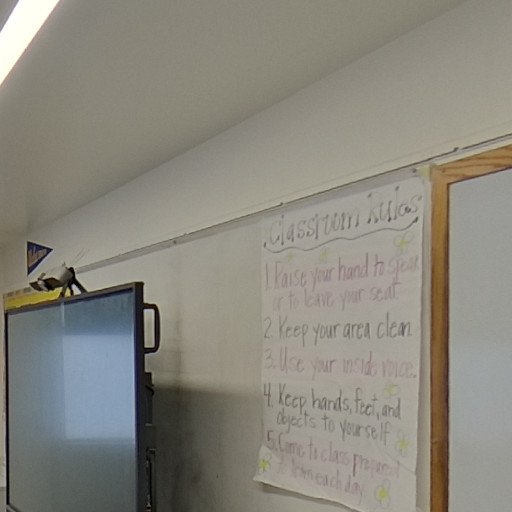 Classroom Rules
1. Raise your hand to speak
or to leave your seat.
2. Keep your area clean.
3. Use your inside voice.
4. Keep hands, feet, and
objects to yourself
5. Come to class prepared
learn each day.